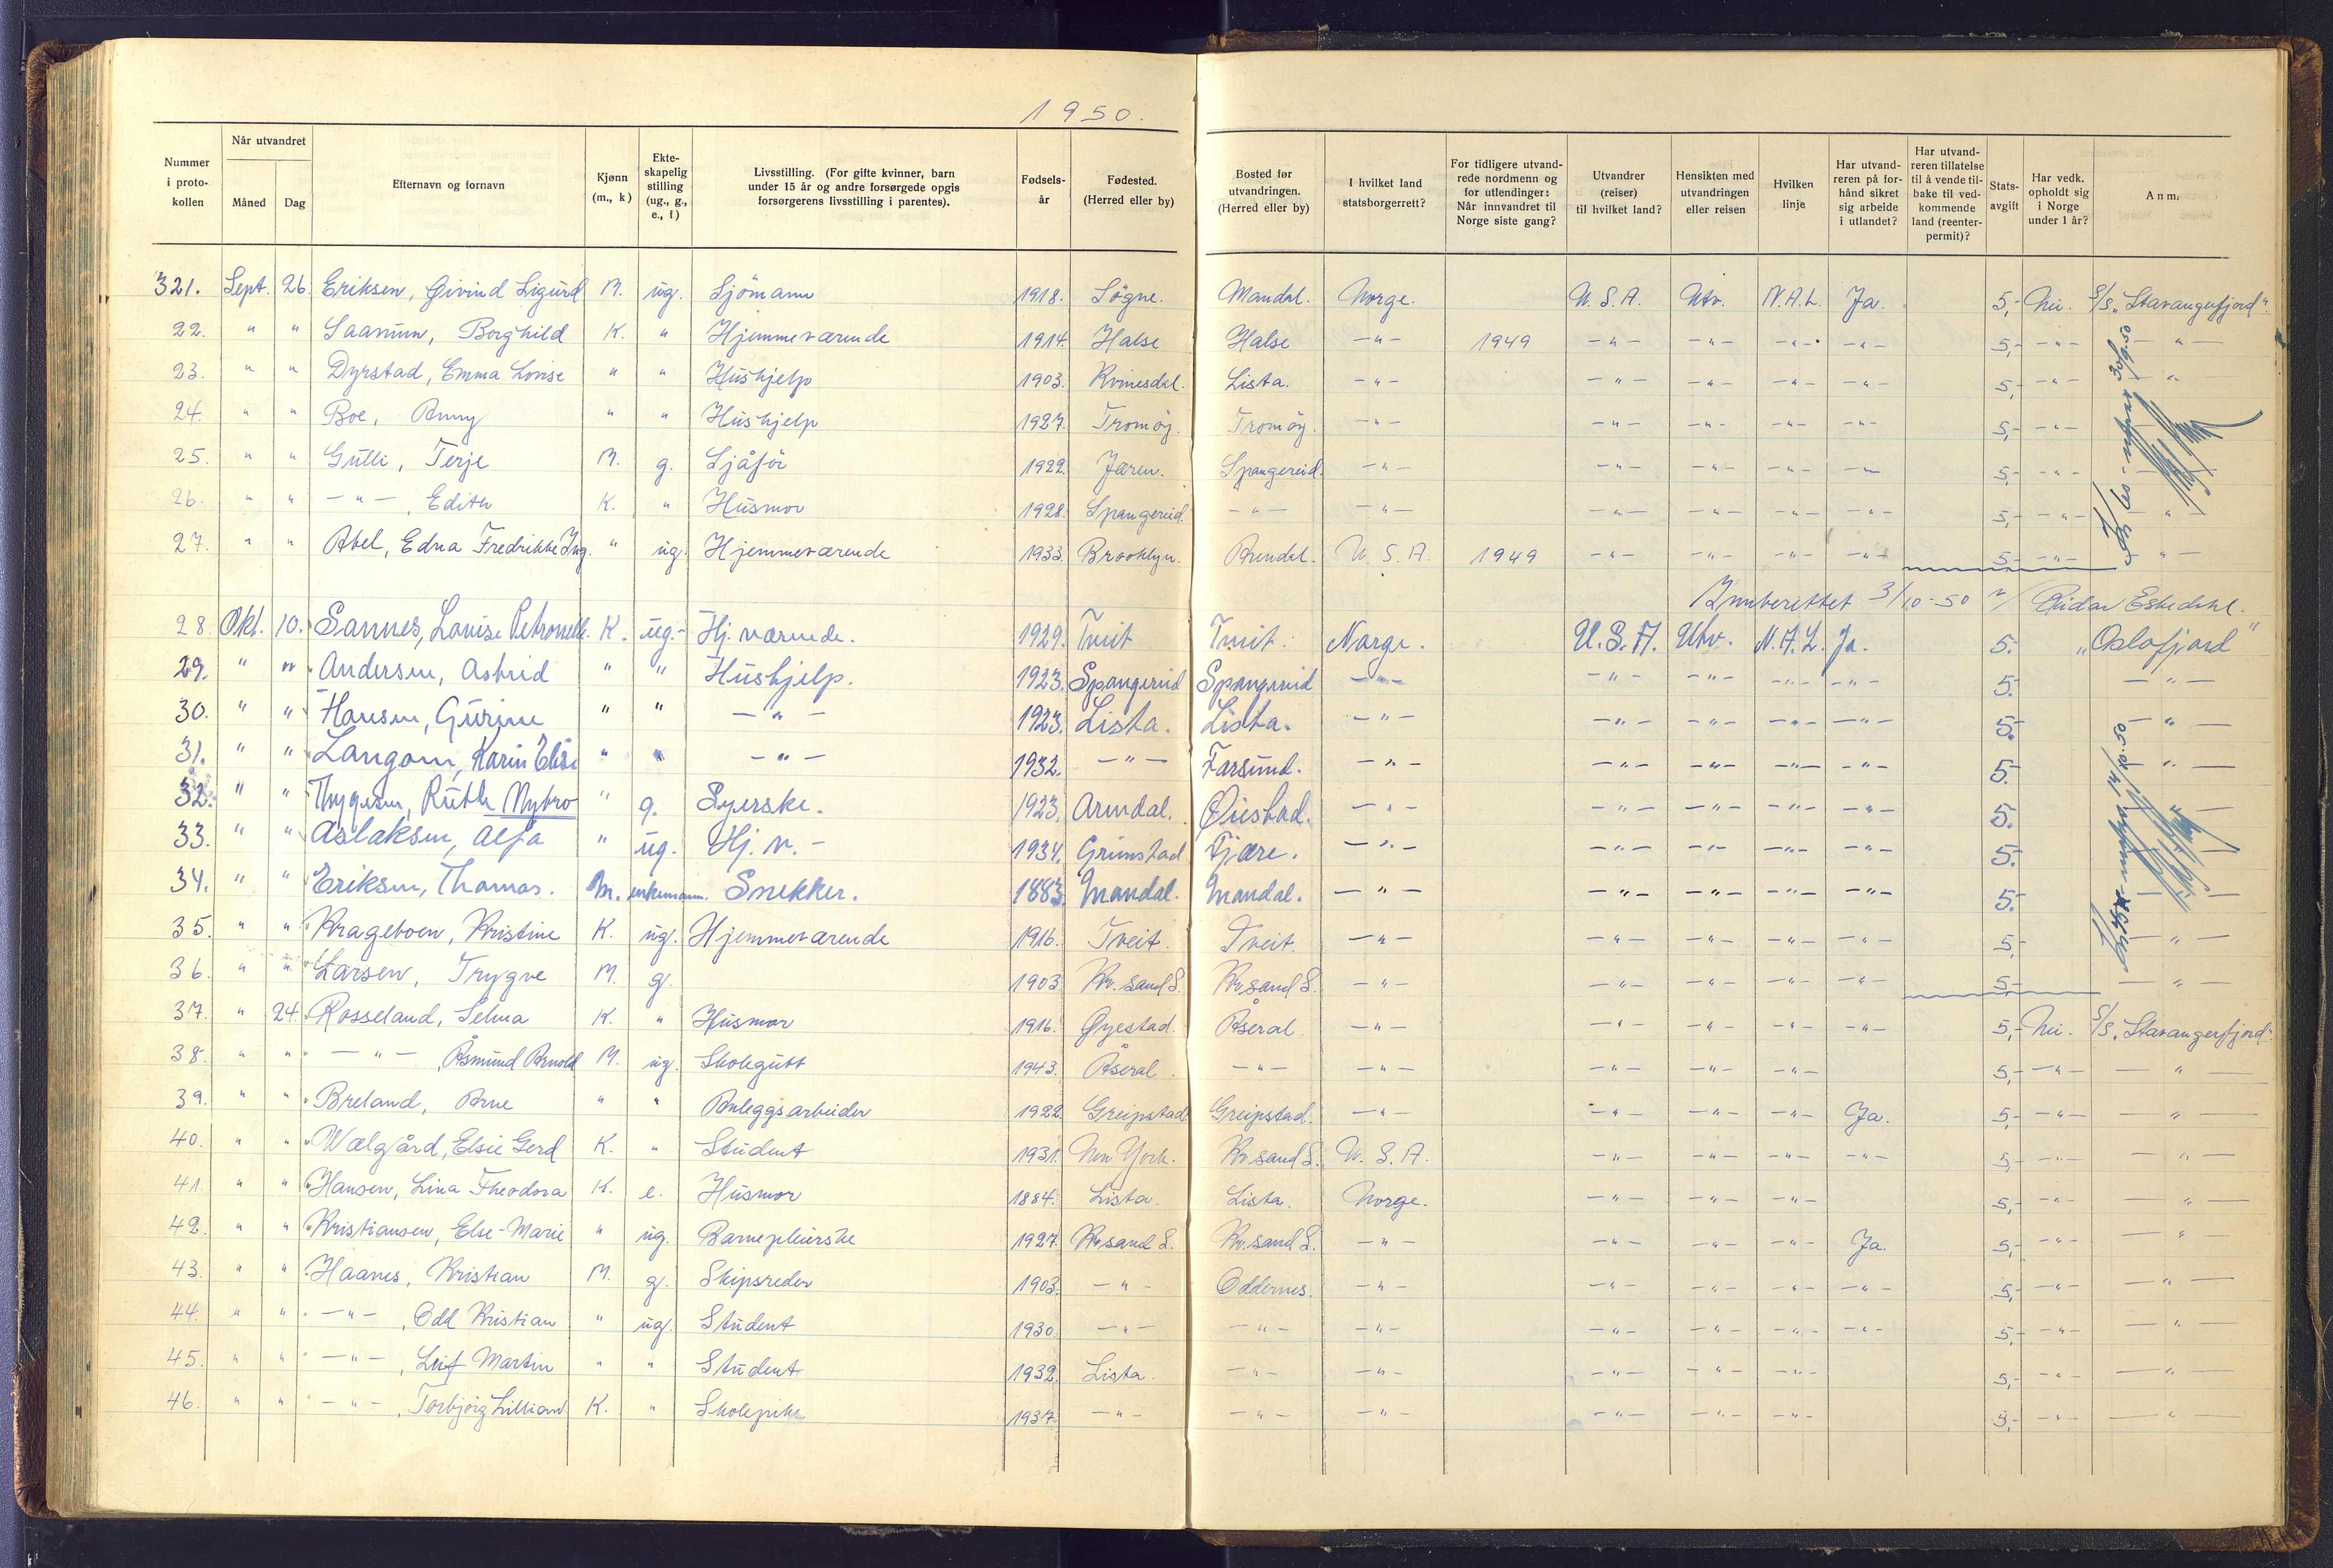 1950.
Nummer i proto-kollen | Når utvandret Måned | Dag | Efternavn og fornavn | Kjønn (m., k) | Ekte-skapelig stilling (ug., g., e., f) | Livsstilling. (For gifte kvinner, barn under 15 år og andre forsørgede opgis forsørgerens livsstilling i parentes). | Fødsels-år | Fødested. (Herred eller by) | Bosted før utvandringen. (Herred eller by) | I hvilket land statsborgerrett? | For tidligere utvand-rede nordmenn og for utlendinger: Når innvandret til Norge siste gang? | Utvandrer (reiser) til hvilket land? | Hensikten med utvandringen eller reisen | Hvilken linje | Har utvand-reren på for-hånd sikret sig arbeide i utlandet? | Har utvand-reren tillatelse til å vende til-bake til ved-kommende land (reenter-permit)? | Stats-avgift | Har vedk. opholdt sig i Norge under 1 år? | Anm.
321. Sept. 26. Eriksen, Øivind Sigurd M. ug. Sjömann 1918. Søgne. Mandal. Norge. U.S.A. Utv. N.A.L. Ja. 5,- Nei. S/S „Stavangerfjord“.
22. " " Saanum, Borghild K. " Hjemmeværende 1914. Halse Halse -"- 1949 -"- -"- -"- -"- 5,- -"- -"-
23. " " Dyrstad, Emma Lovise " " Hushjelp 1903. Kvinesdal. Lista. -"- -"- -"- -"- -"- 5,- -"- -"-
24. " " Boe, Anny " " Hushjelp 1927. Tromøy. Tromøy. -"- -"- -"- -"- -"- 5,- -"-
25. " " Gulli, Terje M. g. Sjåfør 1922. Jæren. Spangereid. -"- -"- -"- -"- -"- 5,- -"-
26. " " -"-, Edith K. " Husmor 1928. Spangereid. -"- -"- -"- -"- -"- -"- 5,- -"- -"-
27. " " Abel, Edna Fredrikke Ing. " ug. Hjemmeværende 1933. Brooklyn. Arendal. U.S.A. 1949 -"- -"- -"- -"- 5,- -"- -"-
Innberettet 3/10-50 Reidar Eskedal.
28. Okt. 10. Sannes, Louise Petronelle. K. ug.- Hj. værende. 1929. Tveit Tveit. Norge. U.S.A. Utv. N.A.L. Ja. 5.- „Oslofjord“
29. " " Andersen, Astrid " " Hushjelp. 1923. Spangereid Spangereid -"- -"- -"- -"- -"- 5.- -"-
30. " " Hansen, Gurine " " -"- 1923. Lista. Lista. -"- -"- -"- -"- -"- 5.- -"-
31. " " Langom, Karin Elise " " -"- 1932. -"- Farsund. -"- -"- -"- -"- -"- 5.- -"-
32. " " Thygesen, Ruth Nybro " g. Syerske. 1923. Arendal. Øiestad. -"- -"- -"- -"- -"- 5.-
33. " " Aslaksen, Alfa " ug. Hj. v.- 1934. Grimstad Fjære. -"- -"- -"- -"- -"- 5.-
34. " " Eriksen, Thomas. M. enkemann. Snekker. 1883. Mandal. Mandal. -"- -"- -"- -"- -"- 5.-
35. " " Krageboen, Kristine K. ug. Hjemmeværende 1916. Tveit. Tveit. -"- -"- -"- -"- -"- 5,- -"-
36. " " Larsen, Trygve M. g. 1903. Kr.sand S. Kr.sand S. -"- -"- -"- -"- -"- 5,- -"-
37. " 24. Rosseland, Selma K. " Husmor 1916. Øyestad. Åseral. -"- -"- -"- -"- -"- 5,- Nei. S/S. „Stavangerfjord“.
38. " " -"-, Åsmund Arnold M. ug. Skolegutt 1943. Åseral. -"- -"- -"- -"- -"- 5,- -"- -"-
39. " " Breland, Arne " " Anleggsarbeider 1922. Greipstad Greipstad. -"- -"- -"- -"- Ja. 5,- -"- -"-
40. " " Wælgård, Elsie Gerd K. " Student 1931. New York. Kr.sand S. U.S.A. -"- -"- -"- -"- 5,- -"- -"-
41. " " Hansen, Lina Theodora K. e. Husmor 1884. Lista. Lista. Norge. -"- -"- -"- 5,- -"- -"-
42. " " Kristiansen, Else-Marie " ug. Barnepleierske 1927. Kr.sand S. Kr.sand S. -"- -"- -"- -"- Ja. 5,- -"- -"-
43. " " Haanes, Kristian M. g. Skipsreder 1903. -"- Oddernes. -"- -"- -"- -"- -"- 5,- -"- -"-
44. " " -"-, Odd Kristian " ug. Student 1930. -"- -"- -"- -"- -"- -"- -"- 5,- -"- -"-
45. " " -"-, Leif Martin " " Student 1932. Lista. -"- -"- -"- -"- -"- 5,- -"- -"-
46. " " -"-, Torbjørg Lillian K. " Skolepike 1937. -"- -"- -"- -"- -"- -"- 5,- -"- -"-